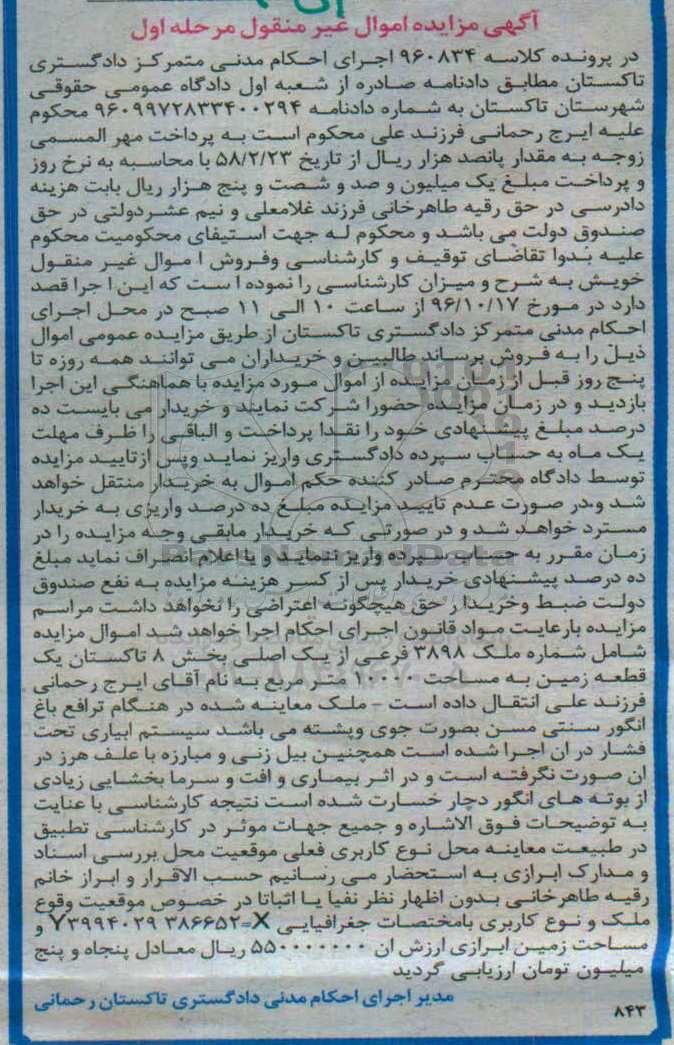 آگهی مزایده اموال غیر منقول مرحله اول
در پرونده کلاسه ۹۶۰۸۳۴ اجرای احکام مدنی متمرکز دادگستری
تاکستان مطابق دادنامه صادره از شعبه اول دادگاه عمومی حقوقی
شهرستان تاکستان به شماره دادنامه ۹۶۰۹۹۷۲۸۳۳۴۰۰۲۹۴ محکوم
علیه ایرج رحمانی فرزند علی محکوم است به پرداخت مهر المسمی
زوجه به مقدار پانصد هزار ریال از تاریخ ۵۸/۲/۲۳ با محاسبه به نرخ روز
و پرداخت مبلغ یک میلیون و صد و شصت و پنج هزار ریال بابت هزینه
دادرسی در حق رقیه طاهرخانی فرزند غلامعلی و نیم عشردولتی در حق
صندوق دولت می باشد و محکوم له جهت استیفای محکومیت محکوم
علیه بدوا تقاضای توقیف و کارشناسی وفروش ا موال غیر منقول
خویش به شرح و میزان کارشناسی را نموده ا ست که این ا جرا قصد
دارد در مورخ ۹۶/۱۰/۱۷ از ساعت ۱۰ الی ۱۱ صبح در محل اجرای
احکام مدنی متمرکز دادگستری تاکستان از طریق مزایده عمومی اموال
ذیل را به فروش برساند طالبین و خریداران می توانند همه روزه تا
پنج روز قبل از زمان مزایده از اموال مورد مزایده با هماهنگی این اجرا
بازدید و در زمان مزایده حضورا شرکت نمایند و خریدار می بایست ده
درصد مبلغ پیشنهادی خود را نقدا پرداخت و الباقی را ظرف مهلت
یک ماه به حساب سپرده دادگستری واریز نماید وپس ازتایید مزایده
توسط دادگاه محترم صادر کننده حکم اموال به خریدار منتقل خواهد
شد و در صورت عدم تایید مزایده مبلغ ده درصد واریزی به خریدار
مسترد خواهد شد و در صورتی که خریدار مابقی وجه مزایده را در
زمان مقرر به حساب سپرده واریز ننماید و یا اعلام انصراف نماید مبلغ
ده درصد پیشنهادی خریدار پس از کسر هزینه مزایده به نفع صندوق
دولت ضبط وخریدا ر حق هیچگونه اعتراضی را نخواهد داشت مراسم
مزایده بارعایت مواد قانون اجرای احکام اجرا خواهد شد اموال مزایده
شامل شماره ملک ۳۸۹۸ فرعی از یک اصلی بخش ۸ تاکستان یک
قطعه زمین به مساحت ۱۰۰۰۰ متر مربع به نام آقای ایرج رحمانی
فرزند علی انتقال داده است - ملک معاینه شده در هنگام ترافع باغ
انگور سنتی مسن بصورت جوی وپشته می باشد سیستم ابیاری تحت
فشار در ان اجرا شده است همچنین بیل زنی و مبارزه با علف هرز در
ان صورت نگرفته است و در اثر بیماری و افت و سرما بخشایی زیادی
از بوته های انگور دچار خسارت شده است نتیجه کارشناسی با عنایت
به توضیحات فوق الاشاره و جمیع جهات موثر در کارشناسی تطبیق
در طبیعت معاینه محل نوع کاربری فعلی موقعیت محل بررسی اسناد
و مدارک ابرازی به استحضار می رسانیم حسب الاقرار و ابراز خانم
رقیه طاهرخانی بدون اظهار نظر نفیا یا اثباتا در خصوص موقعیت وقوع
ملک و نوع کاربری بامختصات جغرافیایی X=۳۸۶۶۵۲ Y۳۹۹۴۰۲۹ و
مساحت زمین ابرازی ارزش ان ۵۵۰۰۰۰۰۰۰ ریال معادل پنجاه و پنج
میلیون تومان ارزیابی گردید
مدیر اجرای احکام مدنی دادگستری تاکستان رحمانی
۸۴۳